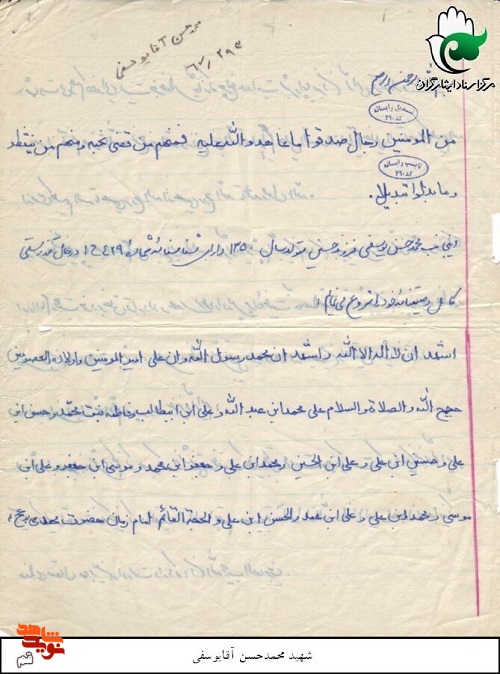 محمدحسن آقایوسفی
مرکز اسناد ایثارگران
بسم الله الرحمن الرحیم
تبدیل رایانه
من المومنین رجال صدقوا ما عاهدو الله علیه فمنهم من قضی نحبه و منهم من ینتظر
تایپ رایانه
و ما بدلوا تبدیلا.
اینجانب محمدحسن یوسفی فرزند حسین متولد سال ۱۳۵۰ دارای شناسنامه شماره ۱۶۴۲۹ در حال تندرستی
کامل وصیتنامه خود را شروع می نمایم
اشهد ان لا اله الا الله و اشهد ان محمد رسول الله و ان علی امیرالمومنین و اولاده المعصومین
حجج الله و الصلاة و السلام علی محمد ابن عبدالله و علی ابن ابیطالب و فاطمه بنت محمد و حسن ابن
علی و حسین ابن علی و علی ابن الحسین و محمد ابن علی و جعفر ابن محمد و موسی ابن جعفر و علی ابن
موسی و محمد ابن علی و علی ابن محمد و الحسن ابن علی و الحجة القائم امام زمان حضرت مهدی (عج)
نوید شاهد
قم
شهید محمدحسن آقایوسفی